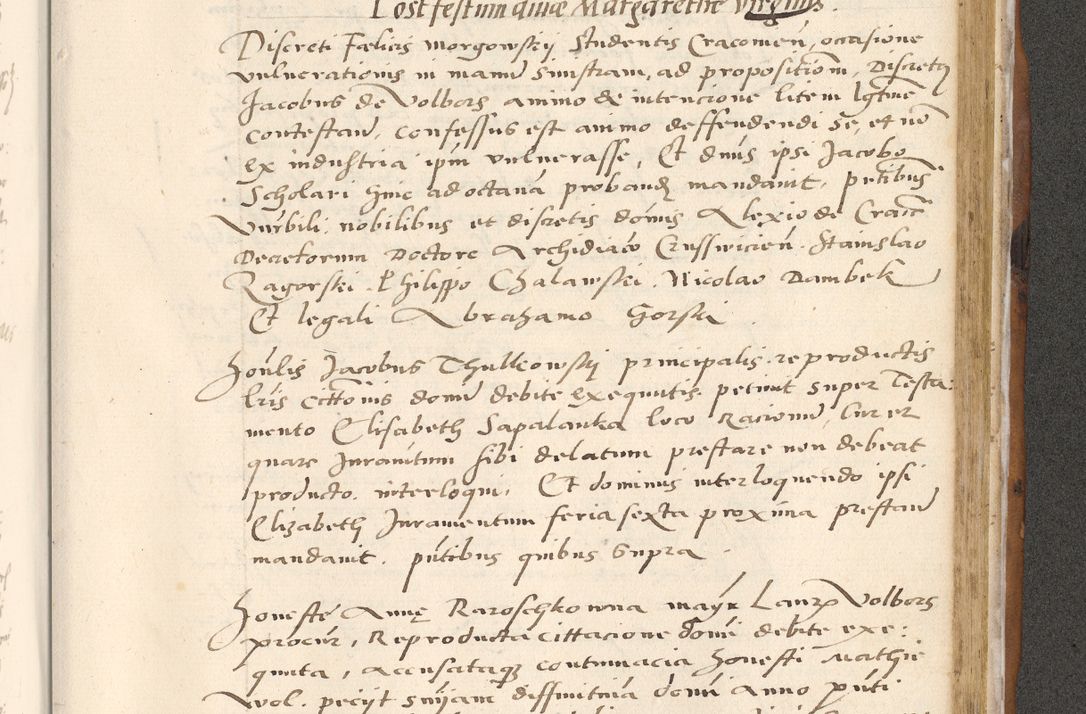 Post festum divae Margarethe Virginis.
Discreti Faelicis Morgowskij Studentis Cracovien, occasione
vulnerationis in manu sinistram, ad propositiom, Discretj
Jacobus de Volbors animo & intencione litem lgtme
contestand, confessus est animo deffendendi se, et no
ex industria ipm vulnerasse, Et dnus ipsi Jacobo
Scholari hinc ad octava proband mandavit, pntibus
Venbili, nobilibus et discretis domis Alexio de Crac
Decretorum Doctore Archidiaco Crusswicien. Stanislao
Zagorski. Philippo Chalawski. Nicolao Dambek
Et legali Abrahamo Gorski
Honlis Jacobus Thulkowskij principalis reproductis
lris cittonis domi debite exequutis petiuit super Testa
mento Elisabeth Sapalanka loco Racionum, Cur et
quare Juramtum sibi delatum prestare non debeat
producto. interloqui, Et dominus interloquendo ipsi
Elizabeth Juramentum feria sexta proxima prestand
mandavit. pntibus quibus supra.
Honeste Annę Raroschkowna Laur Volbors
procur, Reproducta cittacione domi debite exe:
quuta, accusataq contumacia Honesti Mathie
Wol. peciit snijam diffinitiva domi anno pnti